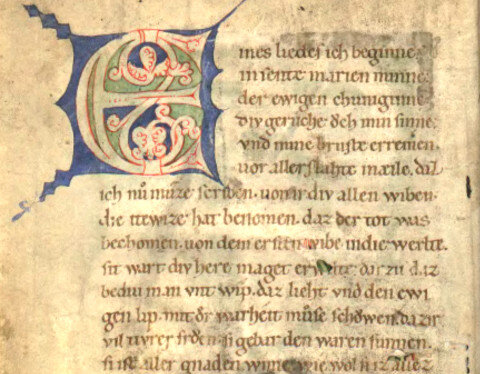 Eines liedes ich beginne
in sente marien minne.
der ewigen chuniginne.
div geruche dch min sinne.
vnd mine bruste erreinen.
vor allerslahte mæile. daz
ich nv mvze scriben. von ir div allen wiben.
die itewize hat benomen. daz der tot was
bechomen. von dem ersten wibe. in die werlte.
sit wart div here maget erwelte. dar zu daz
bediv man vnt wip. daz lieht vnd den ewi
gen lip. mit der warheit mvse schowen. da zir
vil tivrer frden. si gebar den waren sunnen.
si ist aller gnaden wnne. wie wol si iz allez